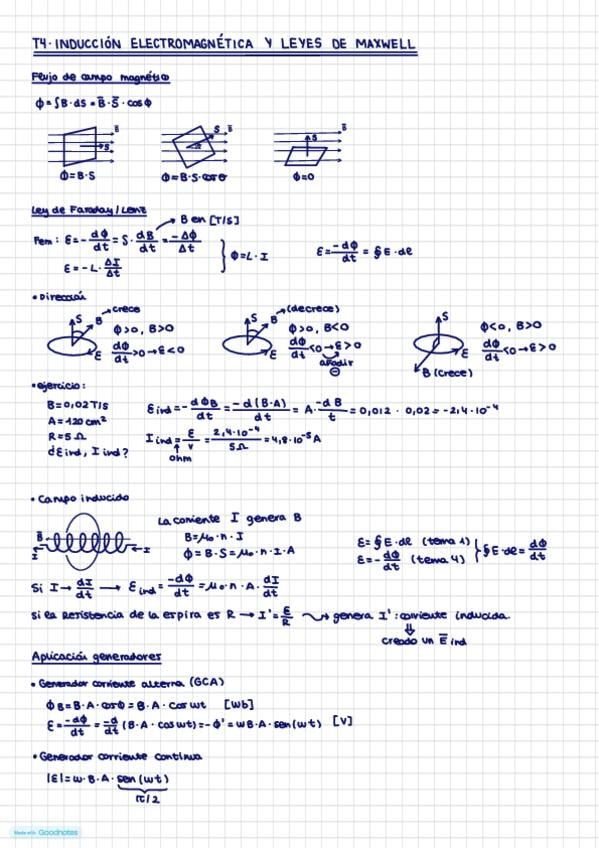 T4· INDUCCIÓN ELECTROMAGNÉTICA Y LEYES DE MAXWELL
Flujo de campo magnético
ϕ = ∫B · ds = B̄ · S̄ · cosϕ
B̄ S B̄ S B̄ S
ϕ = B · S ϕ = B · S · cosθ ϕ = 0
Ley de Faraday/Lenz
B en [T/s]
Fem: ε = - dϕ/dt = S · dB/dt = -Δϕ/Δt
ε = -L · ΔI/Δt } ϕ = L · I ε = -dϕ/dt = ∮E · dl
• Dirección
S B → crece ϕ>0, B>0 dϕ/dt >0 → ε<0 ε
S B → (decrece) ϕ>0, B<0 dϕ/dt <0 → ε>0 ε
añadir ⊖
S ϕ<0, B>0 dϕ/dt <0 → ε>0 ε
B (crece)
• ejercicio:
B = 0,02 T/s
A = 120 cm²
R = 5 Ω
d εind, I ind?
εind = - dϕB/dt = -d(B·A)/dt = A · -dB/dt = 0,012 · 0,02 = -2,4·10⁻⁴
I ind = ε/v = 2,4·10⁻⁴/5Ω = 4,8·10⁻⁵ A
ohm
• Campo inducido
B̄ I I
La corriente I genera B
B = μ₀ · n · I
ϕ = B · S = μ₀ · n · I · A
ε = ∮E · dl (tema 1)
ε = - dϕ/dt (tema 4) } ∮E · dl = dϕ/dt
Si I → dI/dt → εind = -dϕ/dt = μ₀ · n · A · dI/dt
si la resistencia de la espira es R → I' = ε/R ⤳ genera I': corriente inducida.
⇓
creado un Ē ind
Aplicación generadores
• Generador corriente alterna (GCA)
ϕB = B · A · cosϕ = B · A · cos wt [Wb]
ε = -dϕ/dt = -d/dt (B · A · cos wt) = -ϕ' = w B · A · sen(wt) [V]
• Generador corriente continua
|ε| = w · B · A · sen(wt)
π/2
Made with Goodnotes